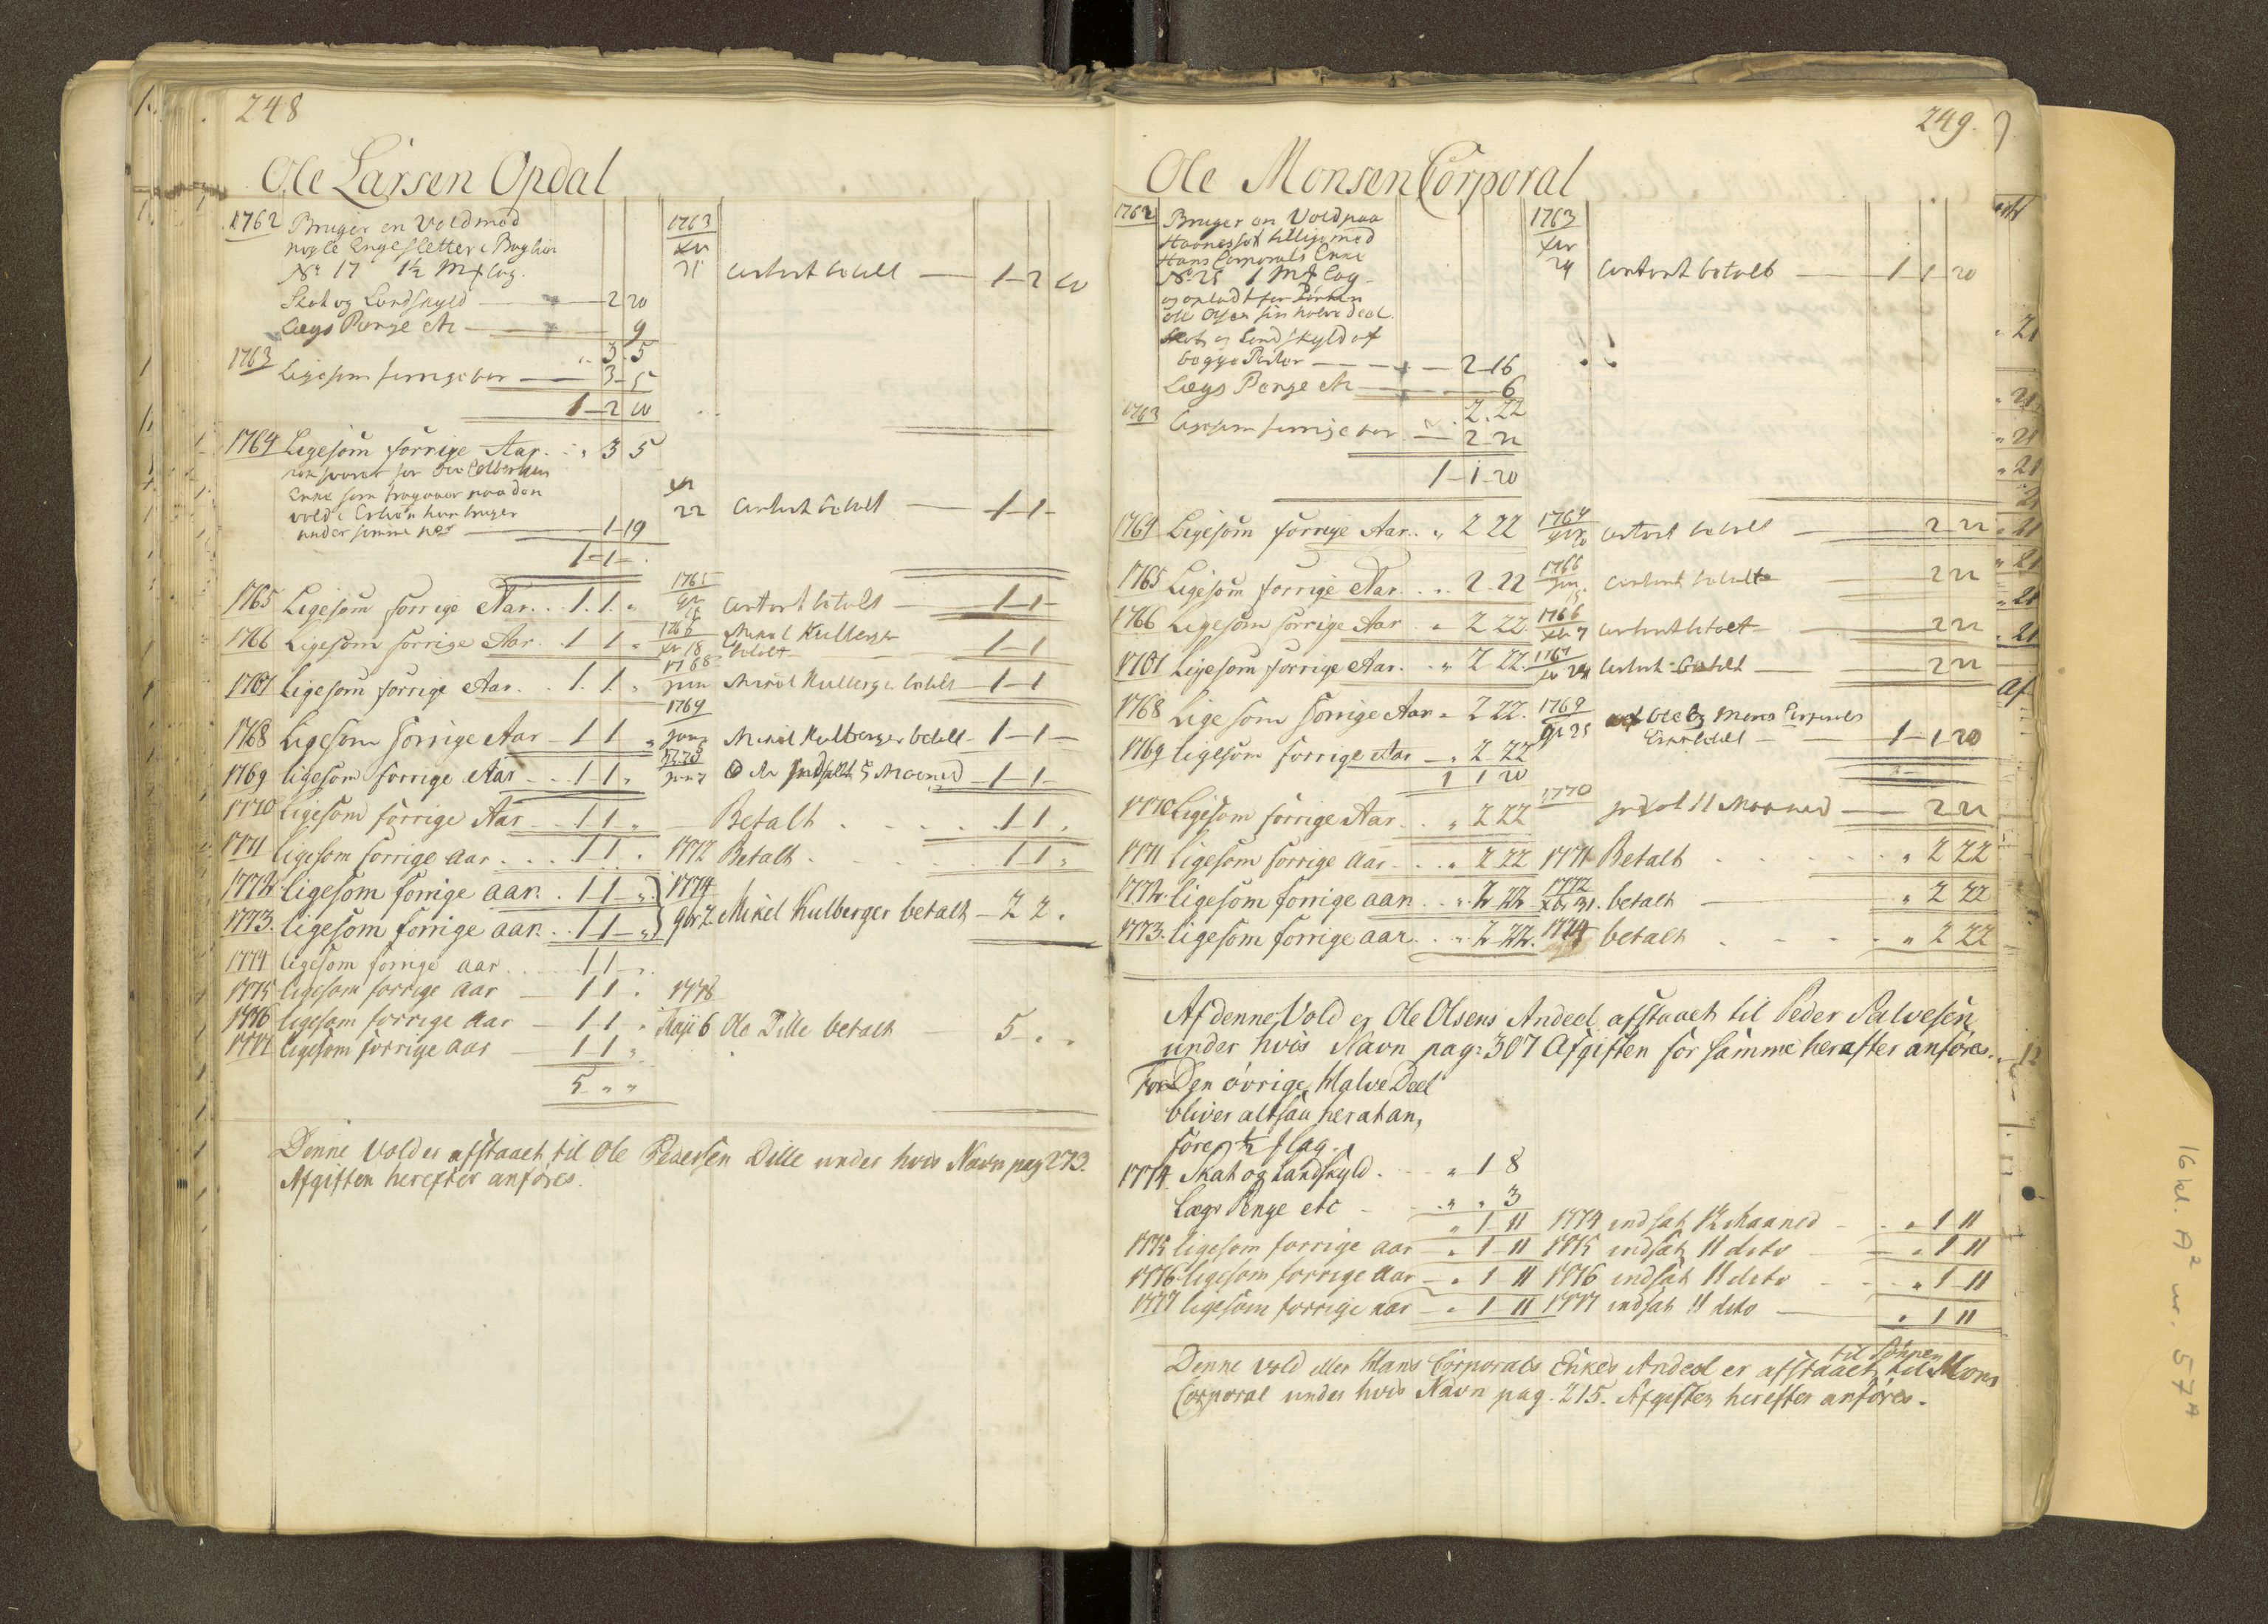 248
Ole Larsen Opdal
1762 Bruger en Vold med
nogle Enge sletter i
No 17 1½ Mf Lag.
Skat og Landskyld — 2 20
Lægs Penge etc — 9
3 5
1763 Ligesom forrige aar — 3 5
1 2 10
1763
Xbr
31 Contant betalt — 1 2 10
1764 Ligesom forrige Aar . . " 3 5
Enke som paa den
vold i hun bruger
under samme — 1 19
1 1 —
Xbr
22 Contant betalt — 1 1 —
1765 Ligesom forrige Aar . . 1. 1. "
1765 Contant betalt — 1 1 —
1766 Ligesom forrige Aar . 1 1 "
1766
Xbr 18 Mikel Kulberger
betalt — 1 1
1767 Ligesom forrige Aar . . 1. 1. "
1768
Jun Mikel Kulberger betalt — 1 1
1768 Ligesom forrige Aar — 1 1 "
1769
Mikel Kulberger betalt — 1 1 —
1769 ligesom forrige Aar — 1 1 "
1770 5 Maaned — 1 1 —
1770 Ligesom forrige Aar — 1 1 "
Betalt . . . . 1 1 "
1771 ligesom forrige aar . . . 1 1 .
1772 Betalt . . . . 1 1 "
1772 ligesom forrige aar . . 1 1 — "
1773. ligesom forrige aar . . 1 1 — "
1774
9br 7. Mikel Kulberger betalt — 2 2 .
1774 ligesom forrige aar . . . 1 1 — "
1775 ligesom forrige aar — 1 1 .
1776 ligesom forrige aar — 1 1 "
1777 ligesom forrige aar — 1 1 "
5 " "
1778
Maji 6 Ole Dille betalt — 5 " "
Denne Vold er afstaaet til Ole Pedersen Dille under hvis Navn pag 273.
Afgiften herefter anföres.
249.
Ole Monsen Corporal
1762 Bruger en Vold paa
tilligemed
Hans Corporals Enke
No 25 1 Mf Lag
og opladt for
Ole Olsen sin halve deel.
Skat og Landskyld af
begge Parter — 2 16
Lægs Penge etc — 6
2. 22
1763 Ligesom forrige aar — 2 22
1 1 20
1763
Xbr
24 Contant betalt — 1 1 20
1764 Ligesom forrige Aar . . " 2 22
1764 Contant betalt — 2 22
1765 Ligesom forrige Aar . . " 2 22
1766 Contant betalt — 2 22
1766 Ligesom forrige Aar . " 2 22.
1766
Xbr 7 Contant betalt — 2 22
1767 Ligesom forrige Aar . . " 2 22.
1767
Xbr 24 Contant betalt — 2 22
1768 Ligesom forrige Aar " 2 22.
1769 ligesom forrige Aar — " 2 22
1 1 20
1769
25 Ole og Mons Corporals
Enke betalt — 1 1 20
1770 Ligesom forrige Aar . . " 2 22
1770 11 Maaned — 2 22
1771 ligesom forrige Aar . . . " 2 22
1771 Betalt . . . . . " 2 22
1772 ligesom forrige aar . . " 2 22
1772
Xbr 31. betalt — " 2 22
1773. ligesom forrige aar . . " 2 22.
1774 betalt . . . . " 2 22
Af denne Vold er Ole Olsens Andeel afstaaet til Peder Salvesen
under hvis Navn pag: 307 Afgiften for samme herefter anföres.
For Den övrige Halve Deel
bliver altsaa her at an,
föres ½ f lag.
1774. Skat og Landskyld . " 1 8
Lægs Penge etc — " " 3
" 1 11
1774 indsat 12 Maaned — " 1 11
1775 ligesom forrige aar — " 1 11
1775 indsat 11 dito — " 1 11
1776 ligesom forrige aar — " 1 11
1776 indsat 11 dito — " 1 11
1777 ligesom forrige aar — " 1 11
1777 indsat 11 dito — " 1 11
Denne vold eller Hans Corporals Enkes Andeel er afstaaet til Sönnen Mons
Corporal under hvis Navn pag. 215. Afgiften herefter anföres.
16 kl. A² nr. 57ᴬ